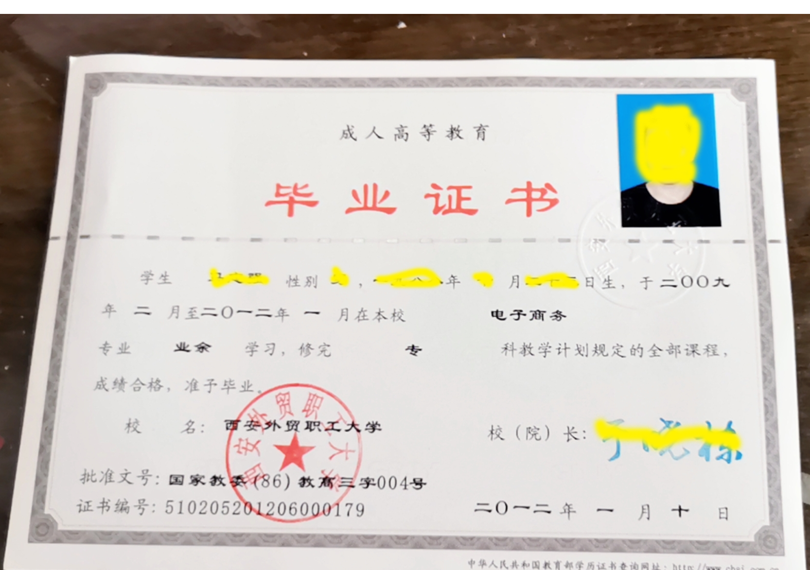 成人高等教育
毕业证书
学生 性别 , 年 月 日生，于二〇〇九
年 二 月至二〇一二年 一 月在本校 电子商务
专业 业余 学习，修完 专 科教学计划规定的全部课程，
成绩合格，准予毕业。
校 名： 西安外贸职工大学
校（院）长：
批准文号：国家教委(86)教高三字004号
证书编号：510205201206000179
二〇一二 年 一 月 十 日
西安外贸职工大学
中华人民共和国教育部学历证书查询网址：